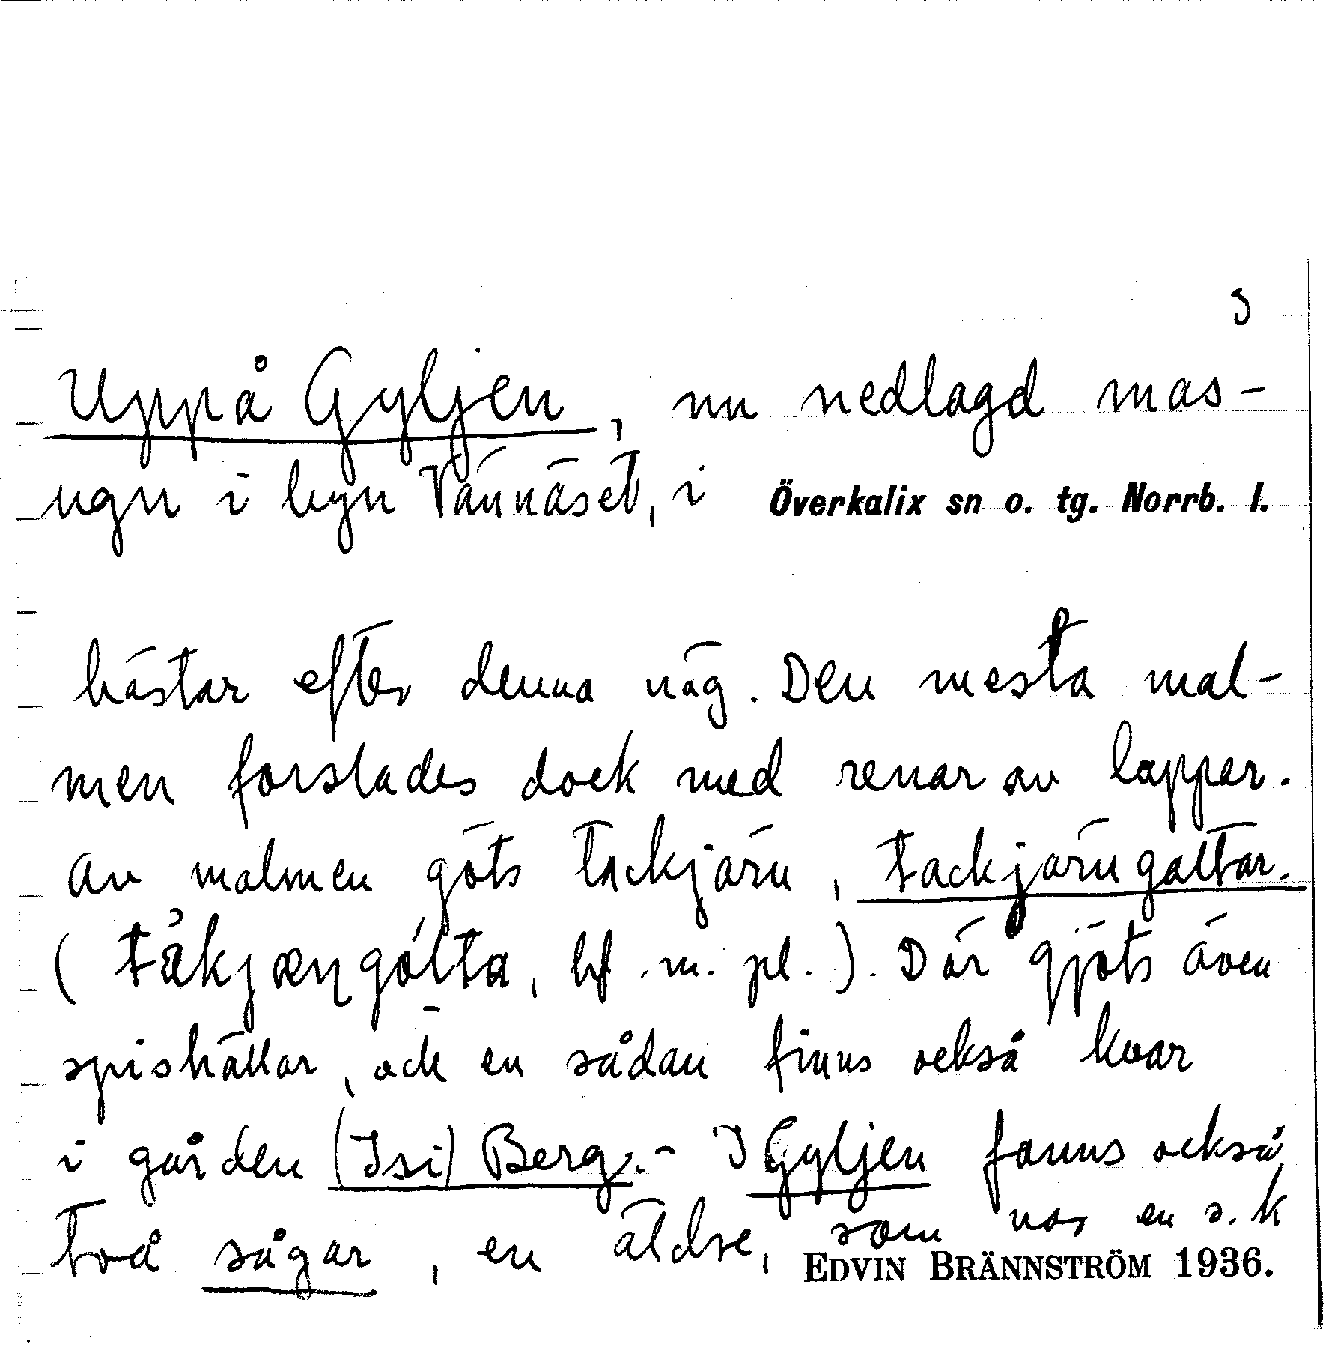 3
Uppå Gyljen, nu nedlagd mas-
ugn i byn Vännäset, i Överkalix sn o. tg. Norrb. l.
hästar efter denna väg. Den mesta mal-
men forslades dock med renar av lappar.
Av malmen göts tackjärn, tackjärngaltar.
( m. pl.). Där gjöts även
spishällar, och en sådan finns också kvar
i gården (Isi) Berg. - I Gyljen fanns också
två sågar, en äldre, som var en s.k
EDVIN BRÄNNSTRÖM 1936.